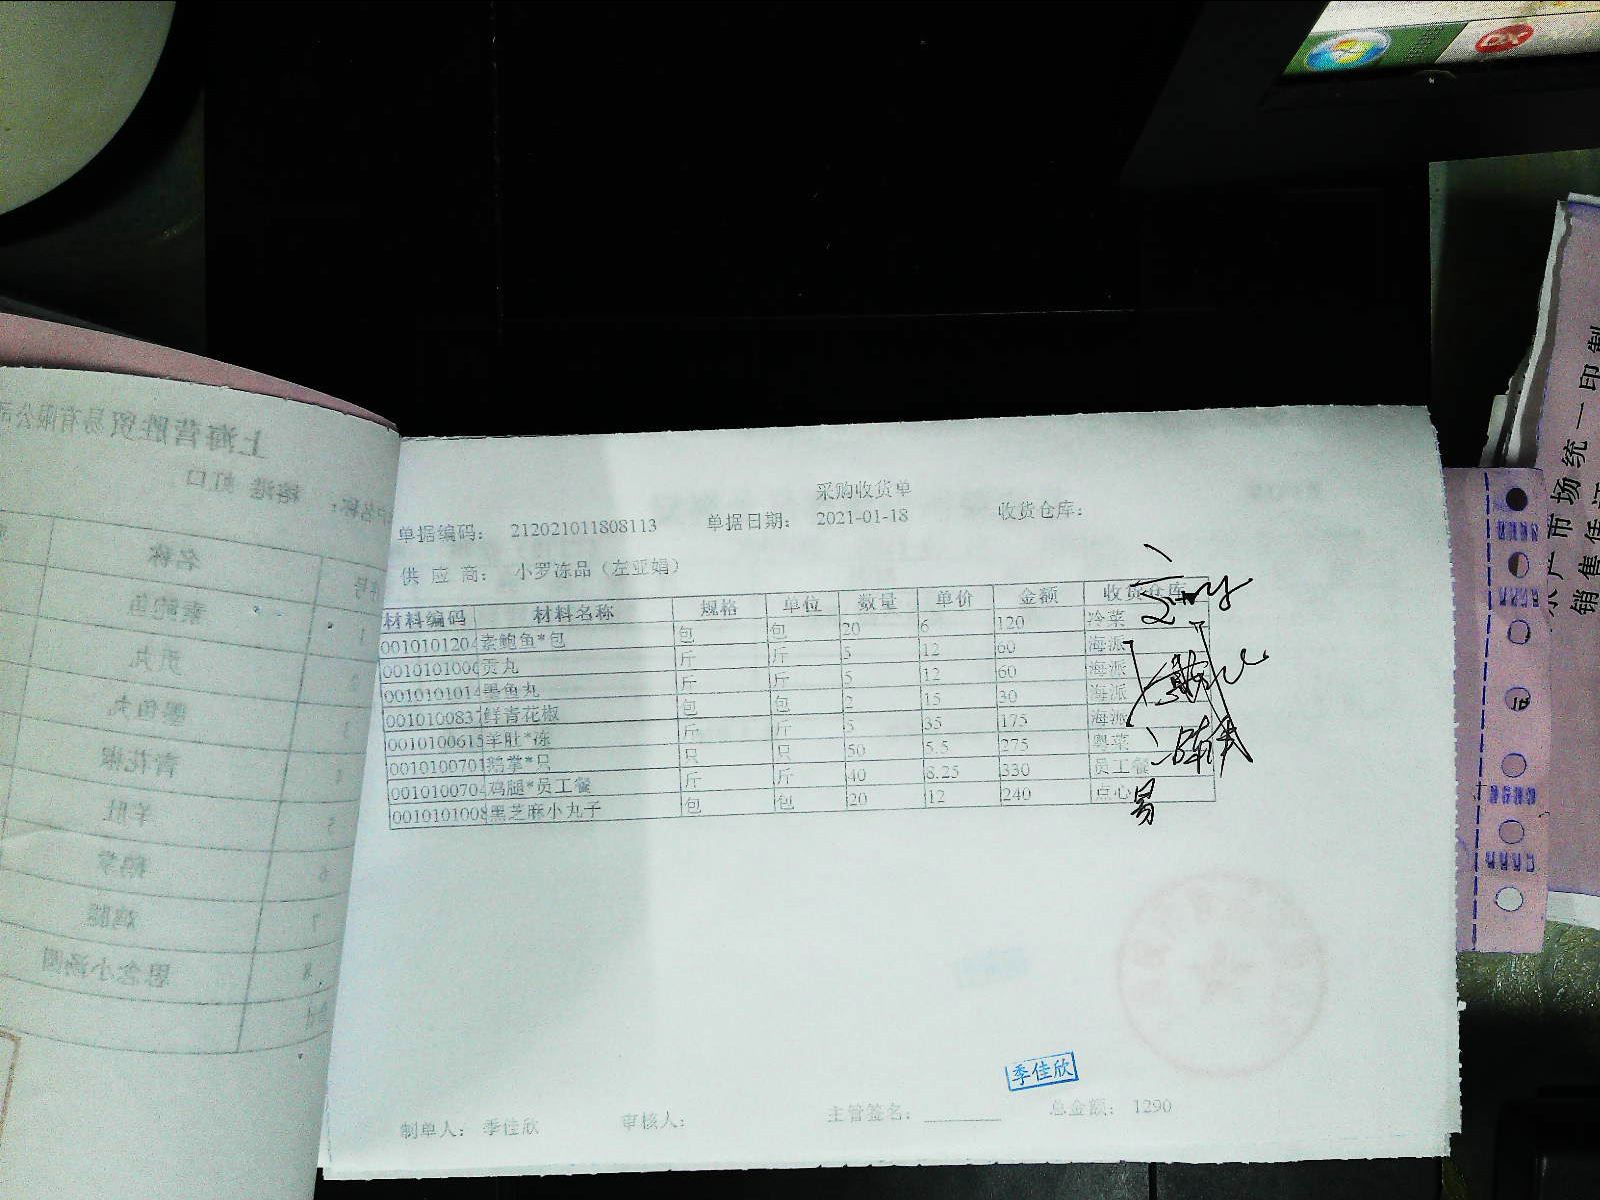 采购收货单
单据编码： 212021011808113 单据日期： 2021-01-18 收货仓库：
供 应 商： 小罗冻品（左亚娟）
材料编码 材料名称 规格 单位 数量 单价 金额 收货仓库
0010101204 素鲍鱼*包 包 包 20 6 120 冷菜
0010101006 贡丸 斤 斤 5 12 60 海派
0010101014 墨鱼丸 斤 斤 5 12 60 海派
001010083 鲜青花椒 包 包 2 15 30 海派
0010100615 羊肚*冻 斤 斤 5 35 175 海派
0010100701 鹅掌*只 只 只 50 5.5 275 粤菜
0010100704 鸡腿*员工餐 斤 斤 40 8.25 330 员工餐
0010101008 黑芝麻小丸子 包 包 20 12 240 点心
季佳欣
制单人： 季佳欣 审核人： 主管签名： 总金额： 1290
上海营胜贸易有限公司
名称
1 素鲍鱼
2 贡丸
3 墨鱼丸
4 青花椒
5 羊肚
6 鹅掌
7 鸡腿
8 思念小汤圆
广市场统一印制
销售凭证